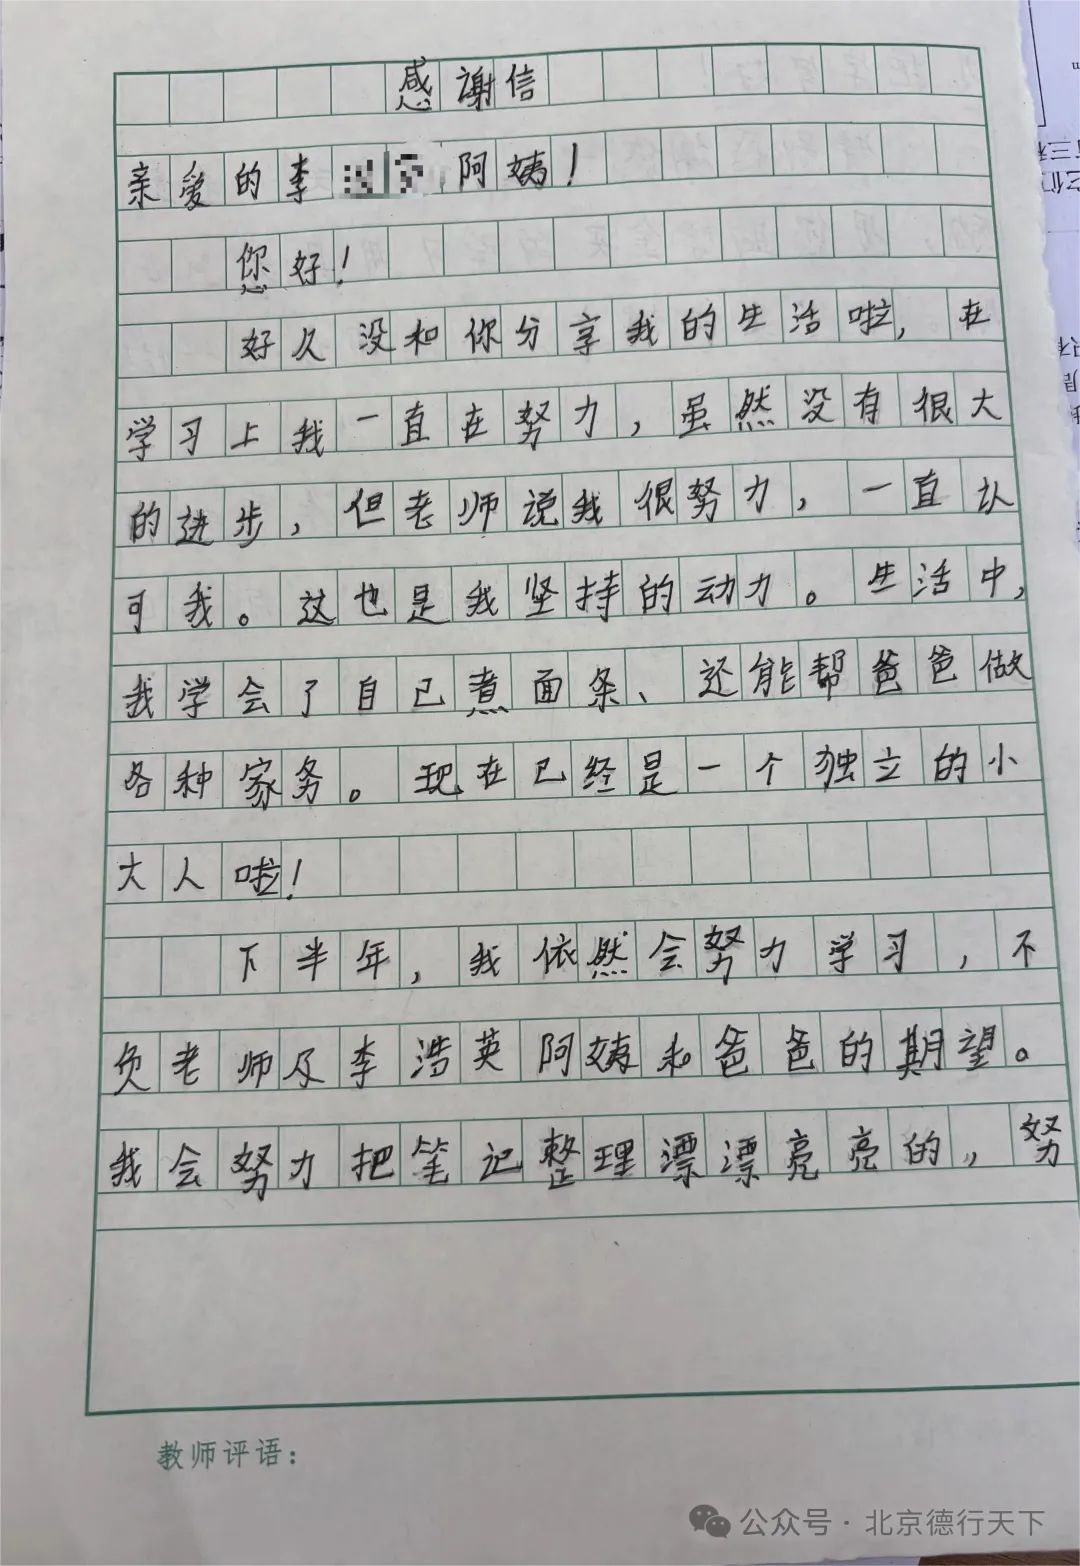 感谢信
亲爱的李阿姨！
您好！
好久没和你分享我的生活啦，在
学习上我一直在努力，虽然没有很大
的进步，但老师说我很努力，一直认
可我。这也是我坚持的动力。生活中，
我学会了自己煮面条、还能帮爸爸做
各种家务。现在已经是一个独立的小
大人啦！
下半年，我依然会努力学习，不
负老师及李浩英阿姨和爸爸的期望。
我会努力把笔记整理漂漂亮亮的，努
教师评语：
公众号·北京德行天下